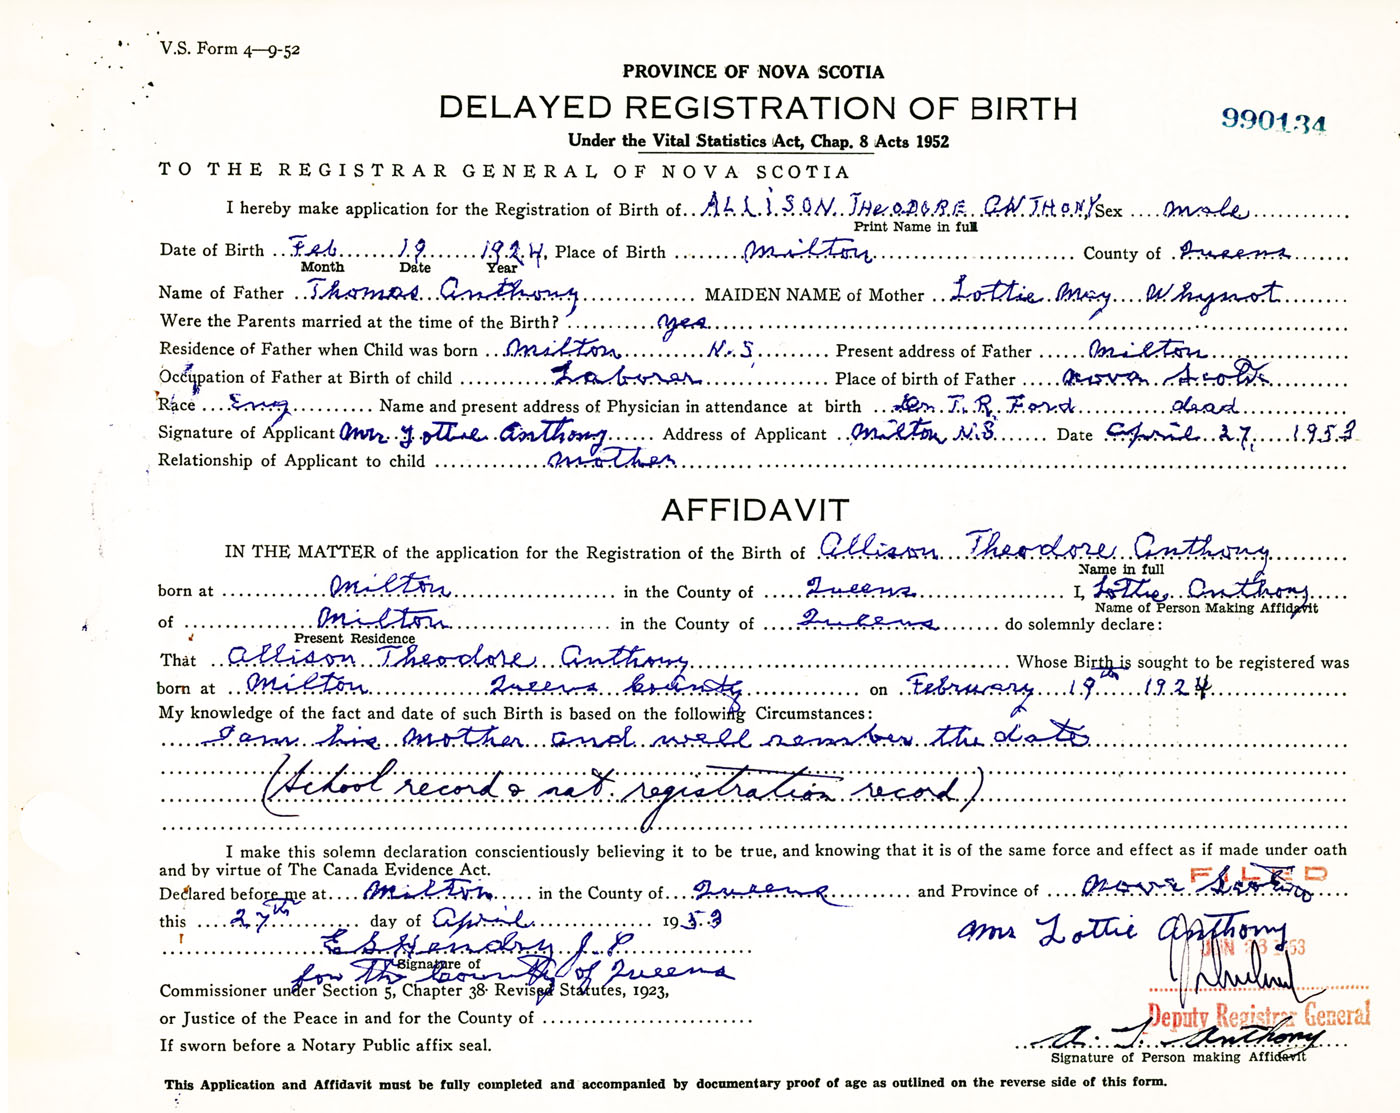 V.S. Form 4—9-52
PROVINCE OF NOVA SCOTIA
DELAYED REGISTRATION OF BIRTH
990134
Under the Vital Statistics Act, Chap. 8 Acts 1952
TO THE REGISTRAR GENERAL OF NOVA SCOTIA
I hereby make application for the Registration of Birth of ALLISON THEODORE ANTHONY Sex male
Print Name in full
Date of Birth Feb 19 1924, Place of Birth Milton County of Queens
Month Date Year
Name of Father Thomas Anthony MAIDEN NAME of Mother Lottie May Whynot
Were the Parents married at the time of the Birth? yes
Residence of Father when Child was born Milton N.S Present address of Father Milton
Occupation of Father at Birth of child Laborer Place of birth of Father Nova Scotia
Race Eng Name and present address of Physician in attendance at birth Dr. T. R. Ford dead
Signature of Applicant Mrs. Lottie Anthony Address of Applicant Milton N.S. Date April 27, 1953
Relationship of Applicant to child mother
AFFIDAVIT
IN THE MATTER of the application for the Registration of the Birth of Allison Theodore Anthony
Name in full
born at Milton in the County of Queens I, Lottie Anthony
Name of Person Making Affidavit
of Milton in the County of Queens do solemnly declare:
Present Residence
That Allison Theodore Anthony Whose Birth is sought to be registered was
born at Milton Queens County on February 19th 1924
My knowledge of the fact and date of such Birth is based on the following Circumstances:
I am his mother and well rember the date
(School record & nat. registration record)
I make this solemn declaration conscientiously believing it to be true, and knowing that it is of the same force and effect as if made under oath
and by virtue of The Canada Evidence Act.
FILED
Declared before me at Milton in the County of Queens and Province of Nova Scotia
this 27th day of April 1953
Mrs Lottie Anthony
JUN 23 1953
E S Hendry J. P
Signature of
for the County of Queens
Commissioner under Section 5, Chapter 38 Revised Statutes, 1923,
Deputy Registrar General
or Justice of the Peace in and for the County of
A. T. Anthony
If sworn before a Notary Public affix seal.
Signature of Person making Affidavit
This Application and Affidavit must be fully completed and accompanied by documentary proof of age as outlined on the reverse side of this form.